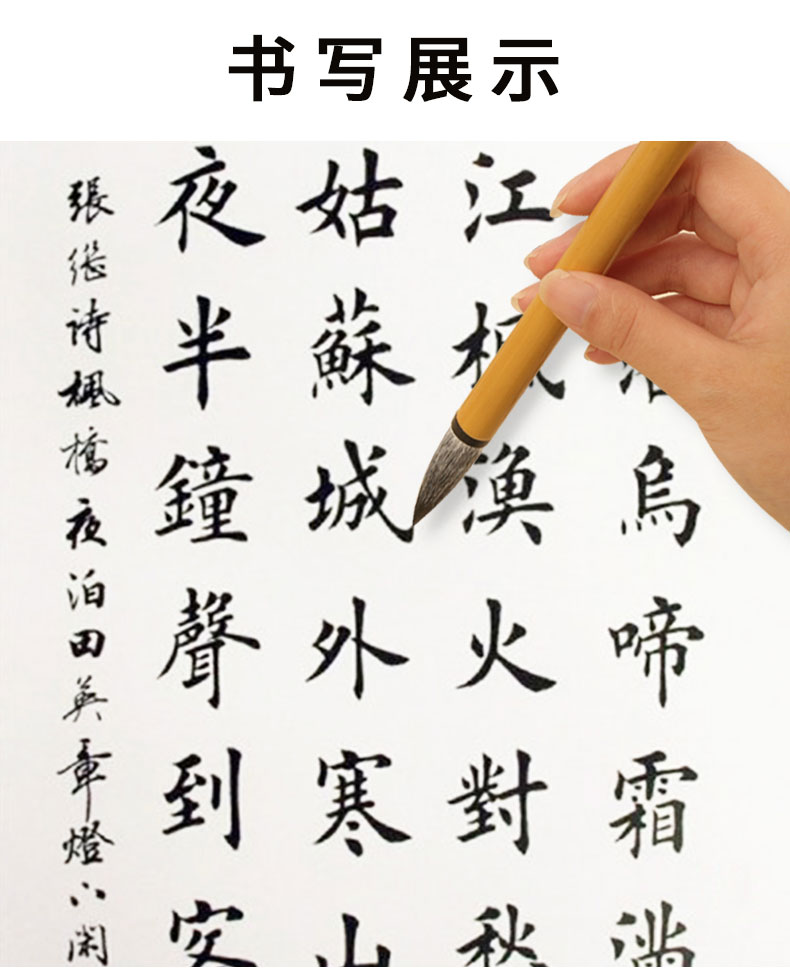 书写展示
烏啼霜滿
江楓漁火對愁
姑蘇城外寒山
夜半鐘聲到客
張継诗楓橋夜泊田英章燈下闲